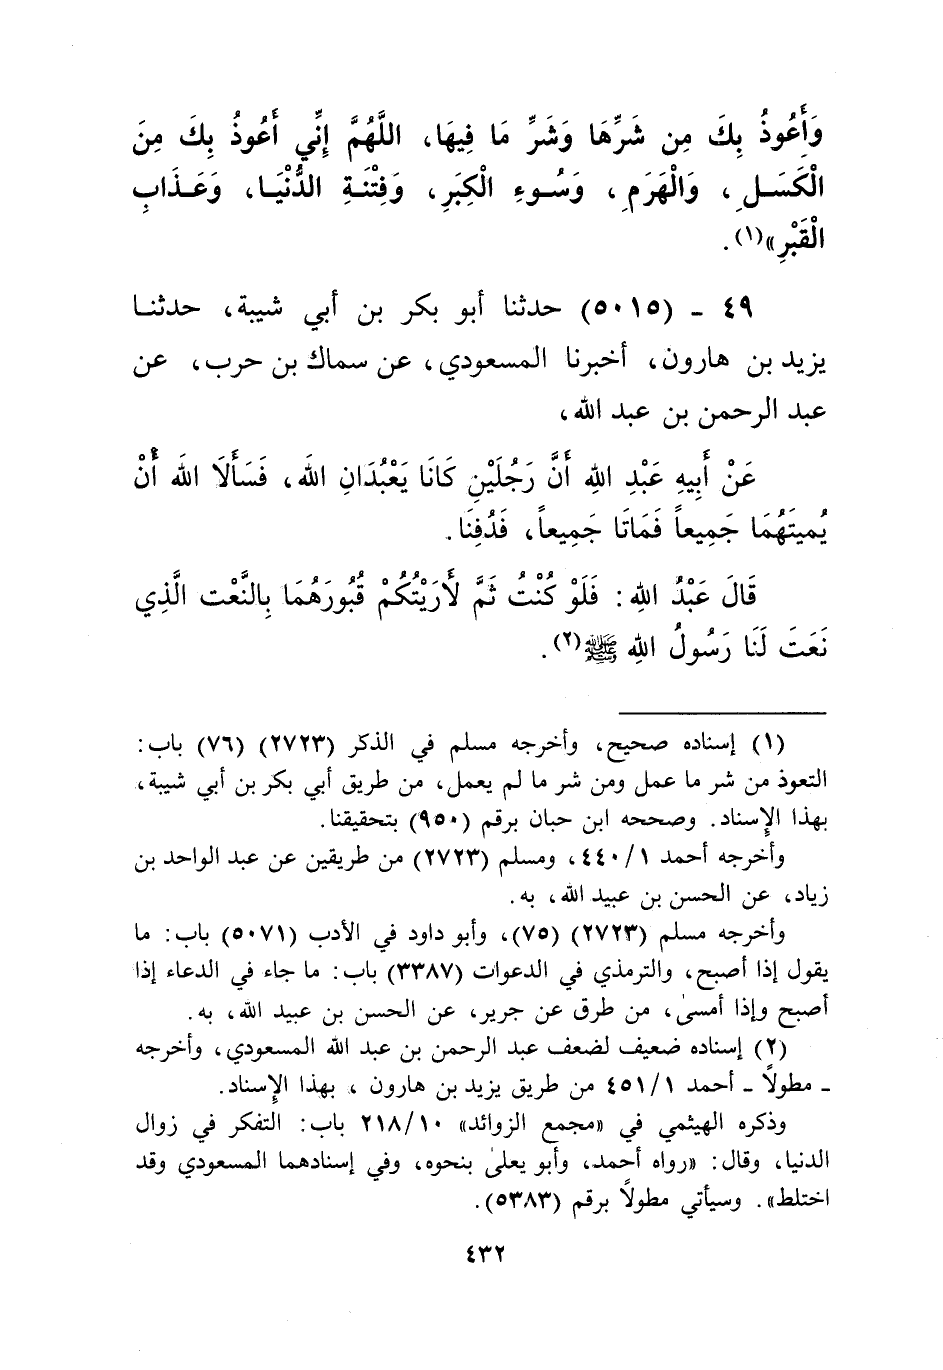 وَأَعُوذُ بِكَ مِن شَرِّهَا وَشَرِّ مَا فِيهَا، اللَّهُمَّ إِنِّي أَعُوذُ بِكَ مِنَ
الْكَسَـلِ، وَالْهَرَمِ، وَسُـوءِ الْكِبَرِ، وَفِتْنَـةِ الدُّنْيَـا، وَعَـذَابِ
الْقَبْرِ»(١).
٤٩ - (٥٠١٥) حدثنا أبو بكر بن أبي شيبة، حدثنـا
يزيد بن هارون، أخبرنا المسعودي، عن سماك بن حرب، عن
عبد الرحمن بن عبد الله،
عَنْ أَبِيهِ عَبْدِ اللهِ أَنَّ رَجُلَيْنِ كَانَا يَعْبُدَانِ الله، فَسَأَلَا الله أَنْ
يُمِيتَهُمَا جَمِيعاً فَمَاتَا جَمِيعاً، فَدُفِنَا.
قَالَ عَبْدُ اللهِ: فَلَوْ كُنْتُ ثَمَّ لأَرَيْتُكُمْ قُبُورَهُمَا بِالنَّعْت الَّذِي
نَعَتَ لَنَا رَسُولُ اللهِ ﷺ(٢).
(١) إسناده صحيح، وأخرجه مسلم في الذكر (٢٧٢٣) (٧٦) باب:
التعوذ من شر ما عمل ومن شر ما لم يعمل، من طريق أبي بكر بن أبي شيبة،
بهذا الإسناد. وصححه ابن حبان برقم (٩٥٠) بتحقيقنا.
وأخرجه أحمد ٤٤٠/١، ومسلم (٢٧٢٣) من طريقين عن عبد الواحد بن
زياد، عن الحسن بن عبيد الله، به.
وأخرجه مسلم (٢٧٢٣) (٧٥)، وأبو داود في الأدب (٥٠٧١) باب: ما
يقول إذا أصبح، والترمذي في الدعوات (٣٣٨٧) باب: ما جاء في الدعاء إذا
أصبح وإذا أمسىٰ، من طرق عن جرير، عن الحسن بن عبيد الله، به.
(٢) إسناده ضعيف لضعف عبد الرحمن بن عبد الله المسعودي، وأخرجه
- مطولاً - أحمد ٤٥١/١ من طريق يزيد بن هارون، بهذا الإسناد.
وذكره الهيثمي في «مجمع الزوائد» ٢١٨/١٠ باب: التفكر في زوال
الدنيا، وقال: «رواه أحمد، وأبو يعلىٰ بنحوه، وفي إسنادهما المسعودي وقد
اختلط». وسيأتي مطولاً برقم (٥٣٨٣).
٤٣٢